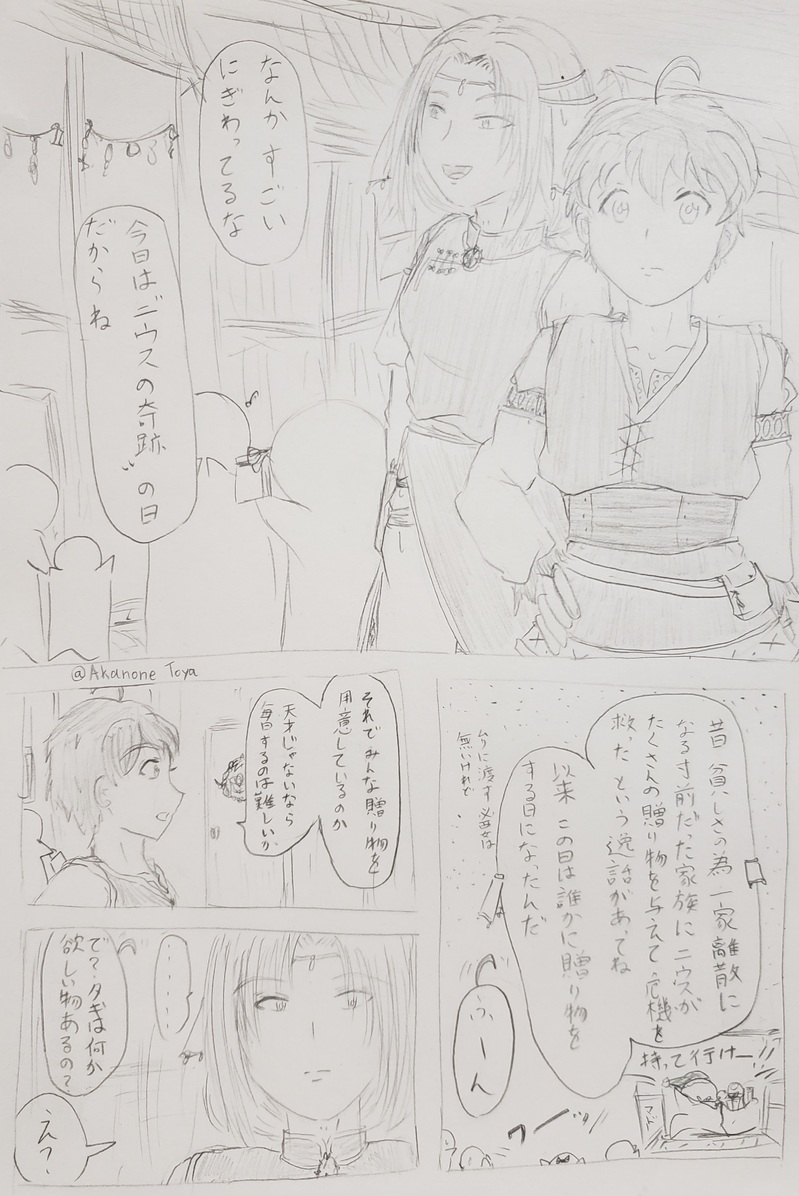 なんか すごい
にぎわってるな
今日は〝ニウスの奇跡〟の日
だからね
@Akanone Toya
昔 貧しさの為 一家離散に
なる寸前だった家族に ニウスが
たくさんの贈り物を与えて 危機を
救った という逸話があってね
以来 この日は誰かに贈り物を
する日になったんだ
ムリに渡す必要は
無いけれど
ふーん
持って行けー!!
マド
ワーッ!!
それで みんな贈り物を
用意しているのか
天才じゃないなら
毎日するのは難しいか
・・・・・
で?タギは何か
欲しい物あるの?
え?